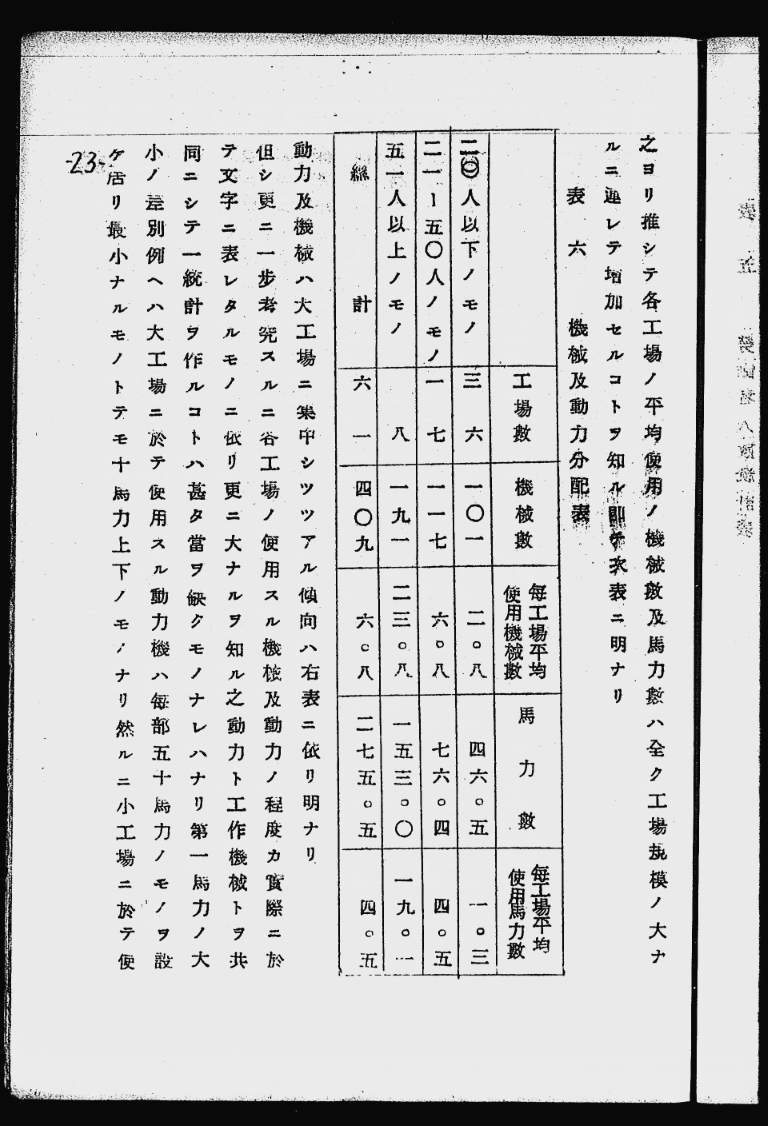 之ヨリ推シテ各工場ノ平均使用ノ機械數及馬力數ハ全ク工場規模ノ大ナ
ルニ連レテ增加セルコトヲ知ル即チ次表ニ明ナリ
表六 機械及動力分配表
工場數 機械數 每工場平均使用機械數 馬力數 每工場平均使用馬力數
二〇人以下ノモノ 三六 一〇一 二。八 四六。五 一。三
二一ー五〇人ノモノ 一七 一一七 六。八 七六。四 四。五
五一人以上ノモノ 八 一九一 二三。八 一五三。〇 一九。一
總計 六一 四〇九 六。八 二七五。五 四。五
動力及機械ハ大工場ニ集中シツツアル傾向ハ右表ニ依リ明ナリ
但シ更ニ一步考究スルニ各工場ノ使用スル機械及動力ノ程度カ實際ニ於
テ文字ニ表レタルモノニ依リ更ニ大ナルヲ知ル之動力ト工作機械トヲ共
同ニシテ一統計ヲ作ルコトハ甚タ當ヲ缺クモノナレハナリ第一馬力ノ大
小ノ差別例ヘハ大工場ニ於テ使用スル動力機ハ每部五十馬力ノモノヲ設
ケ居リ最小ナルモノトテモ十馬力上下ノモノナリ然ルニ小工場ニ於テ使
-23-